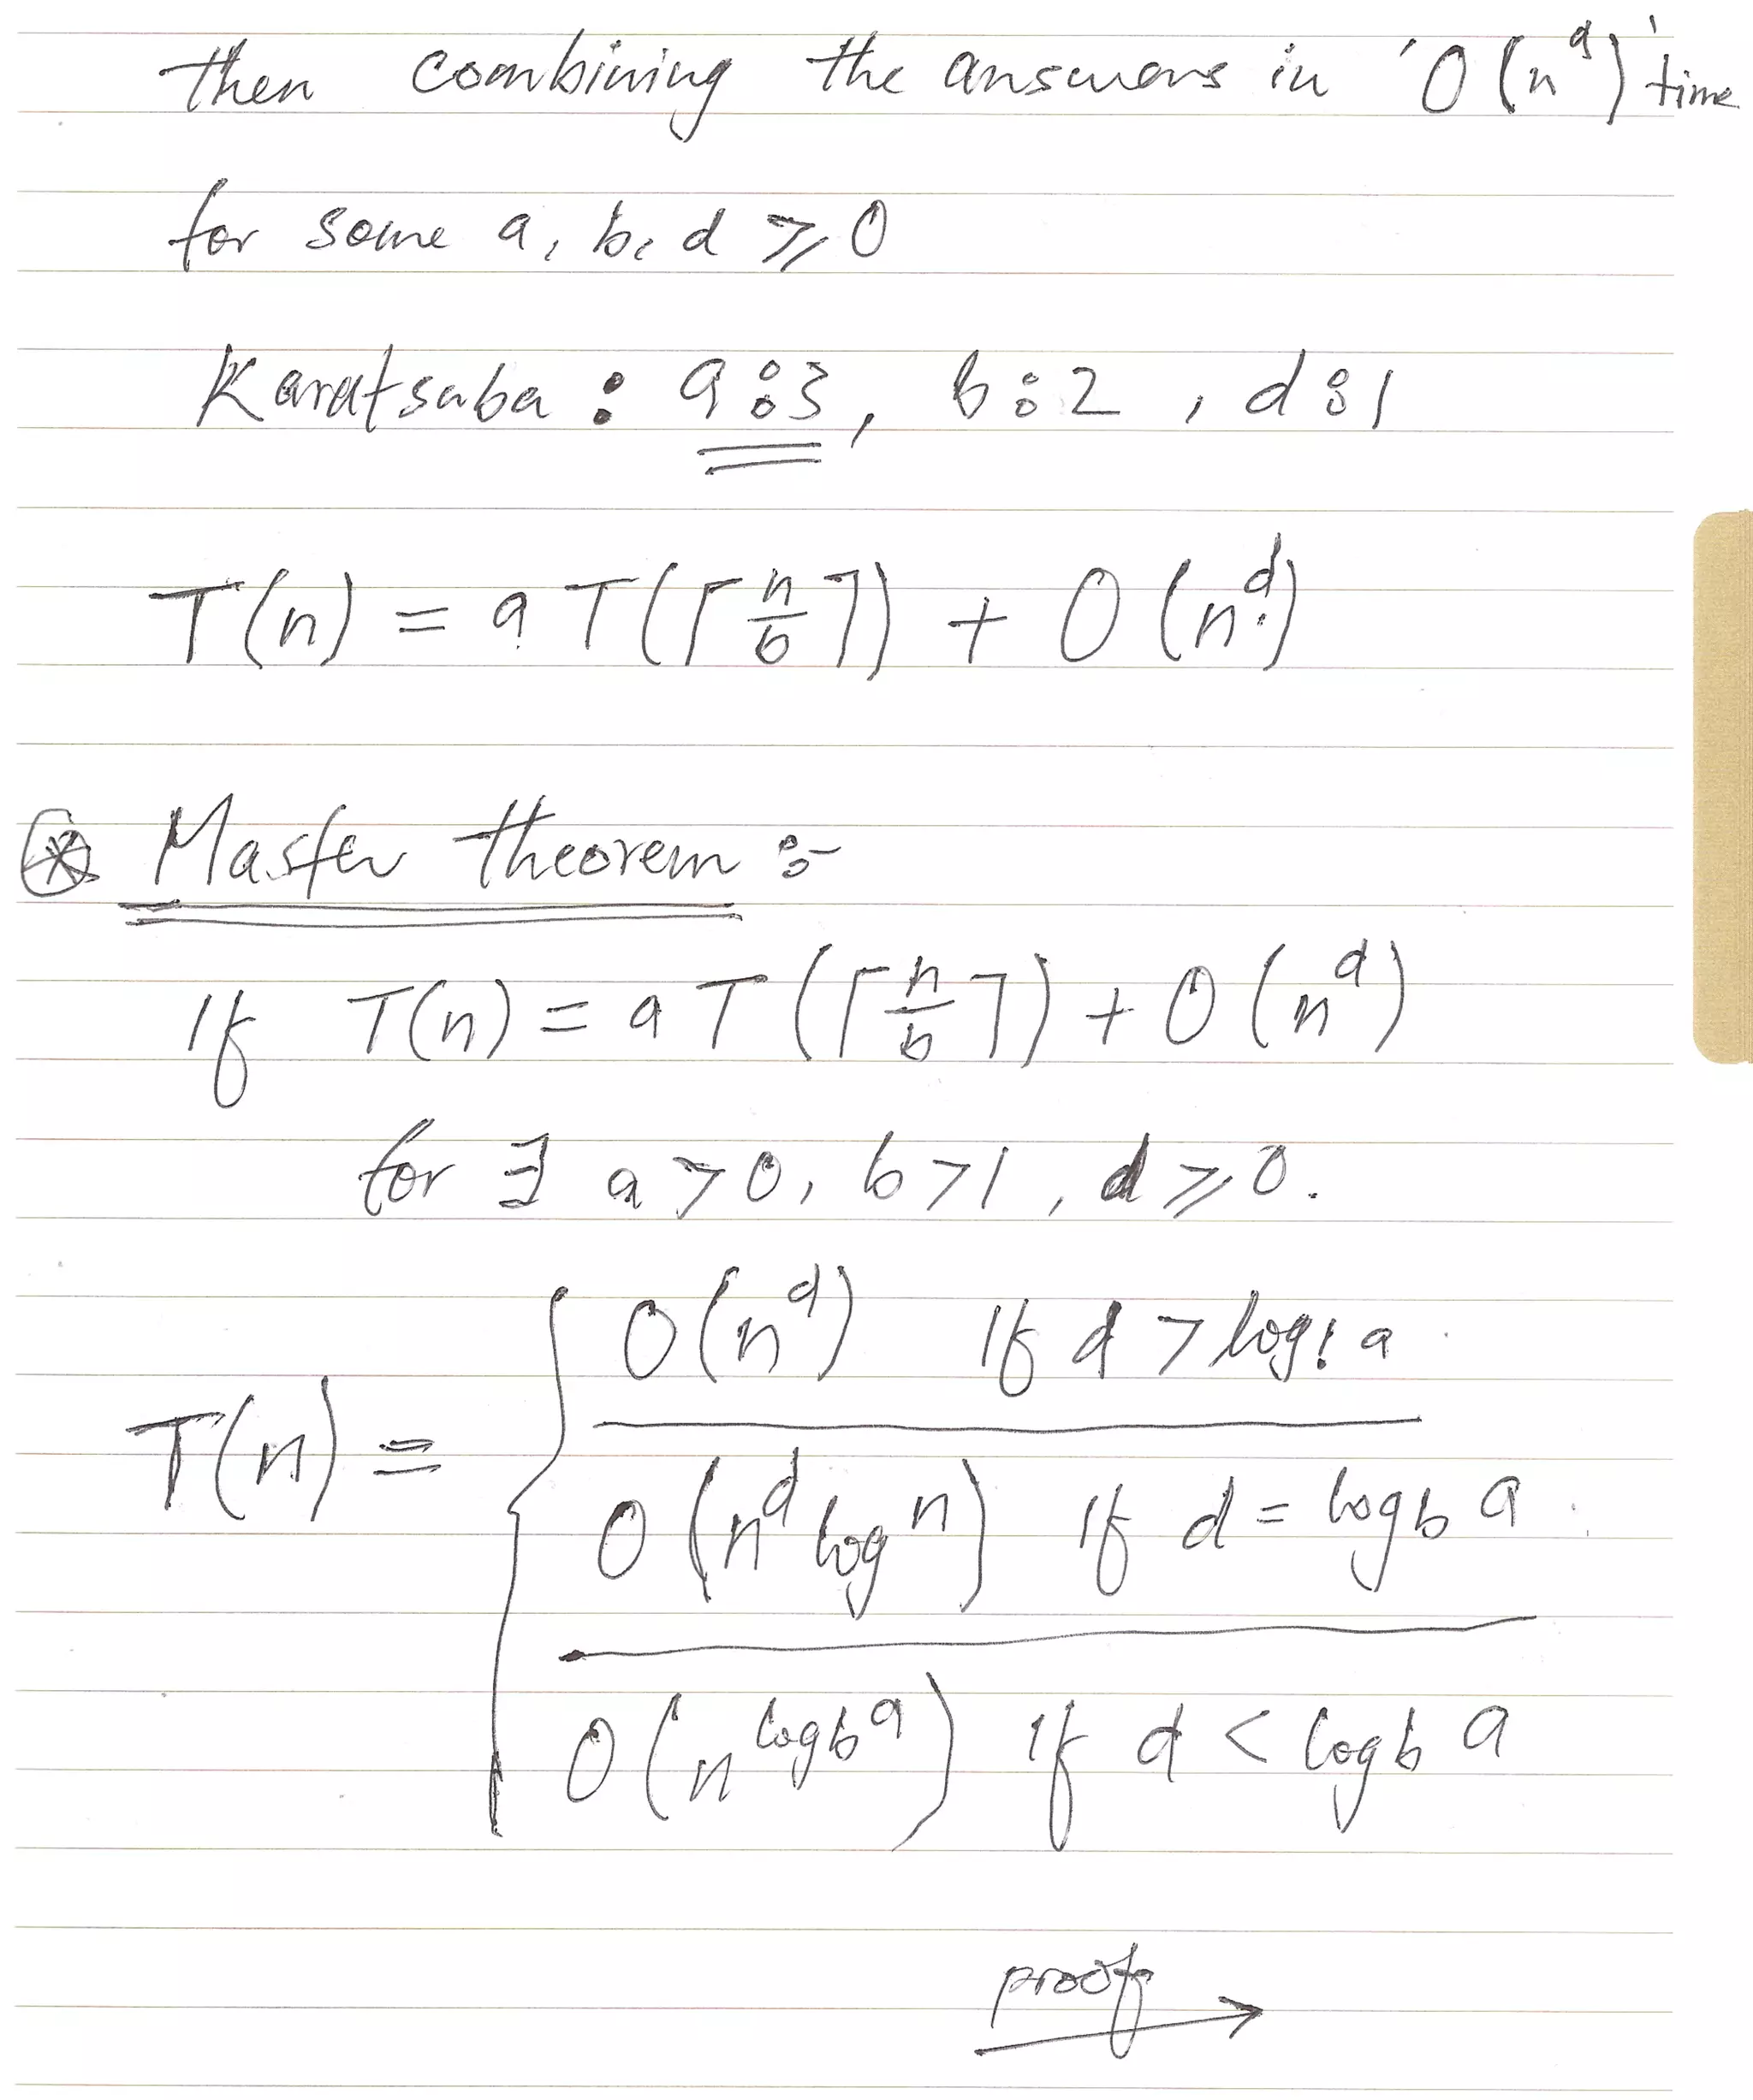 then combining the answers in 'O(n^d)' time
for some a, b, d ⩾ 0
Karatsuba : a : 3, b : 2 , d : 1
T(n) = a T(⌈n/b⌉) + O(n^d)
⊛ Master theorem :-
If T(n) = a T(⌈n/b⌉) + O(n^d)
for ∃ a > 0, b > 1, d ⩾ 0.
O(n^d) If d > log_b a
T(n) =
O(n^d log n) If d = log_b a
O(n^(log_b a)) If d < log_b a
proof →